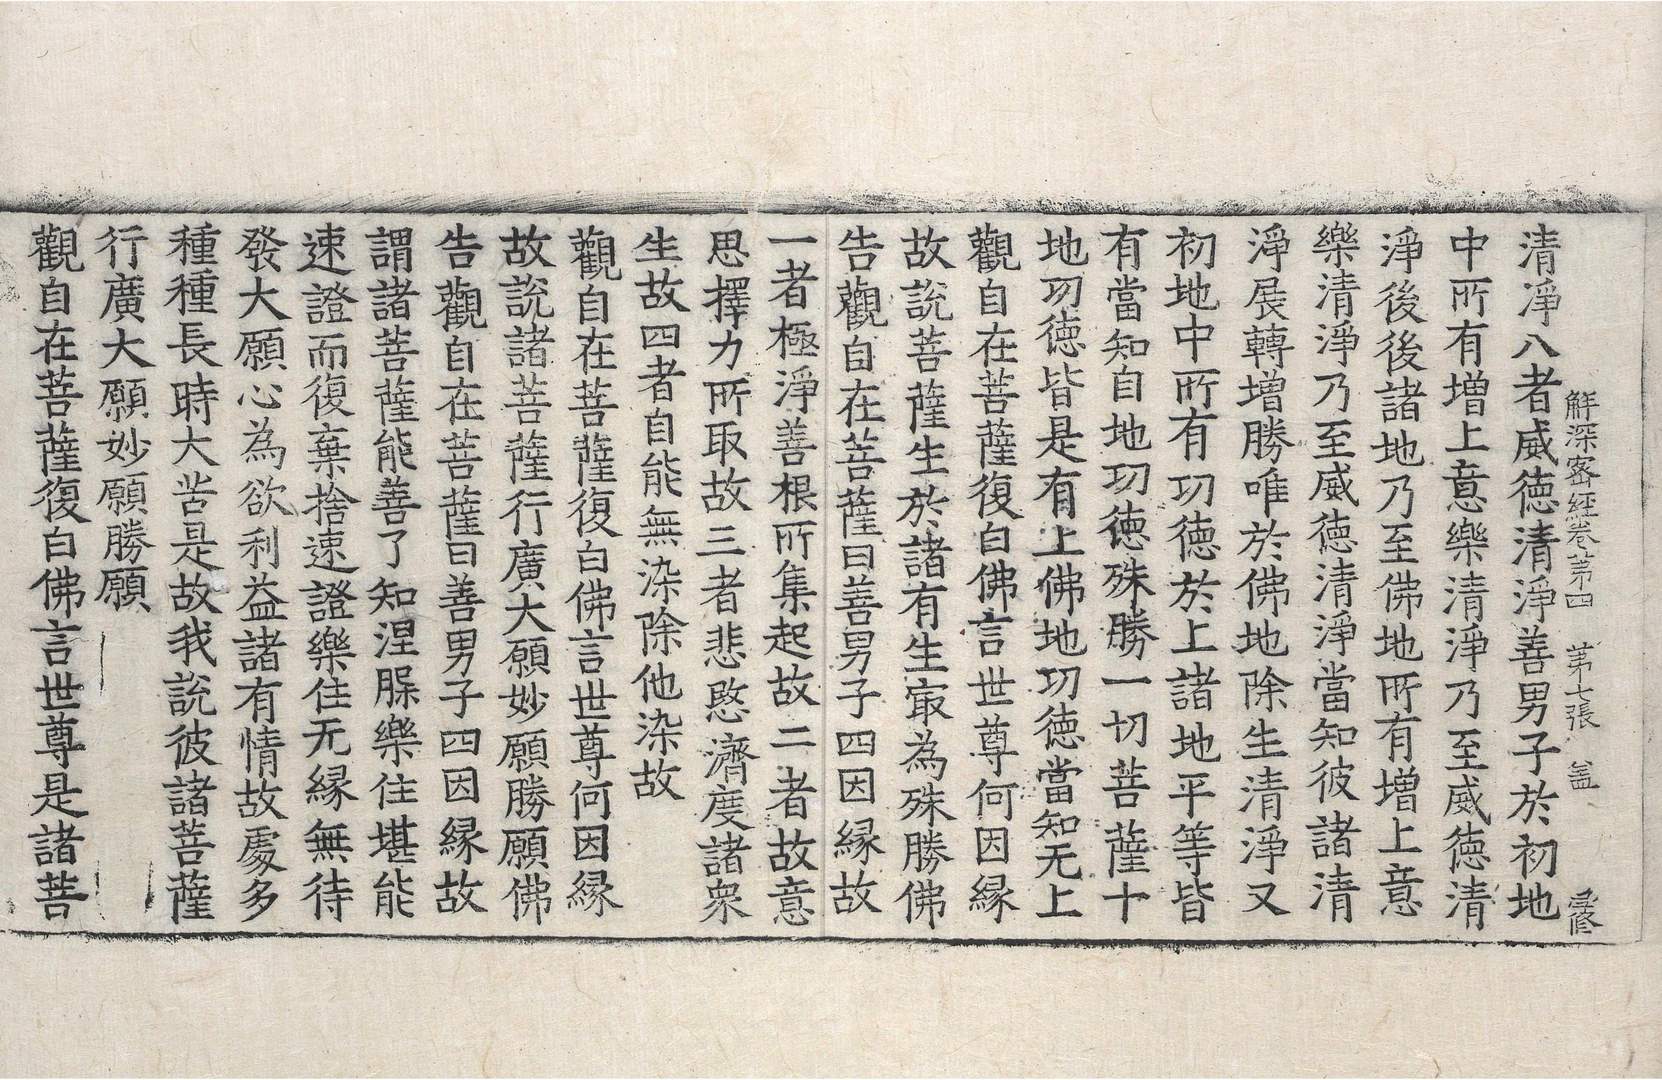 解深密經卷第四　第七張　盖　修
清淨八者威德清淨善男子於初地
中所有增上意樂清淨乃至威德清
淨後後諸地乃至佛地所有增上意
樂清淨乃至威德清淨當知彼諸清
淨展轉增勝唯於佛地除生清淨又
初地中所有功德於上諸地平等皆
有當知自地功德殊勝一切菩薩十
地功德皆是有上佛地功德當知无上
觀自在菩薩復白佛言世尊何因縁
故說菩薩生於諸有生㝡為殊勝佛
告觀自在菩薩曰善男子四因縁故
一者極淨善根所集起故二者故意
思擇力所取故三者悲愍濟度諸衆
生故四者自能無染除他染故
觀自在菩薩復白佛言世尊何因縁
故說諸菩薩行廣大願妙願勝願佛
告觀自在菩薩曰善男子四因縁故
謂諸菩薩能善了知涅槃樂住堪能
速證而復棄捨速證樂住无縁無待
發大願心為欲利益諸有情故處多
種種長時大苦是故我說彼諸菩薩
行廣大願妙願勝願
觀自在菩薩復白佛言世尊是諸菩